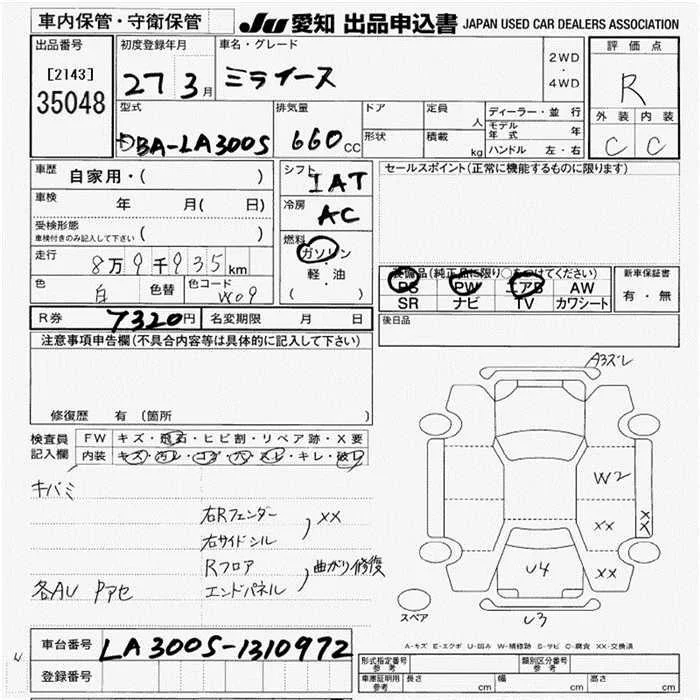 車内保管・守衛保管
JU 愛知 出品申込書 JAPAN USED CAR DEALERS ASSOCIATION
出品番号
[2143]
35048
初度登録年月
27 3月
車名・グレード
ミライース
2WD
・
4WD
評価点
R
外装 内装
C C
型式
DBA-LA300S
排気量
660cc
ドア
形状
定員 人
積載 kg
ディーラー・並行
モデル年式 年
ハンドル 左・右
車歴
自家用・( )
車検
年 月( 日)
受検形態
車検付きのみ記入して下さい ( )
走行
8万9千935km
色
白
色替
色コード
W09
シフト
IAT
冷房
AC
燃料
ガソリン
・
軽・油
( )
セールスポイント(正常に機能するものに限ります)
装備品(純正品に限り○をつけてください)
PS PW エアB AW
SR ナビ TV カワシート
新車保証書
有・無
後日品
R券 7320円
名変期限 月 日
注意事項申告欄(不具合内容等は具体的に記入して下さい)
修復歴 有(箇所 )
検査員
記入欄
FW キズ・飛石・ヒビ割・リペア跡・X要
内装 キズ・汚レ・コゲ・穴・スレ・キレ・破レ
キバミ
右Rフェンダー
右サイドシル
, XX
Rフロア
エンドパネル
, 曲がり修復
各AU Pアセ
A3ズレ
W2
XX
XX
XX
U4
U3
スペア
A-キズ E-エクボ U-凹み W-補修跡 S-サビ C-腐食 XX-交換済
車台番号
LA300S-1310972
登録番号
形式指定番号
参考
類別区分番号
参考
車庫証明用
参考
長さ cm
幅 cm
高さ cm